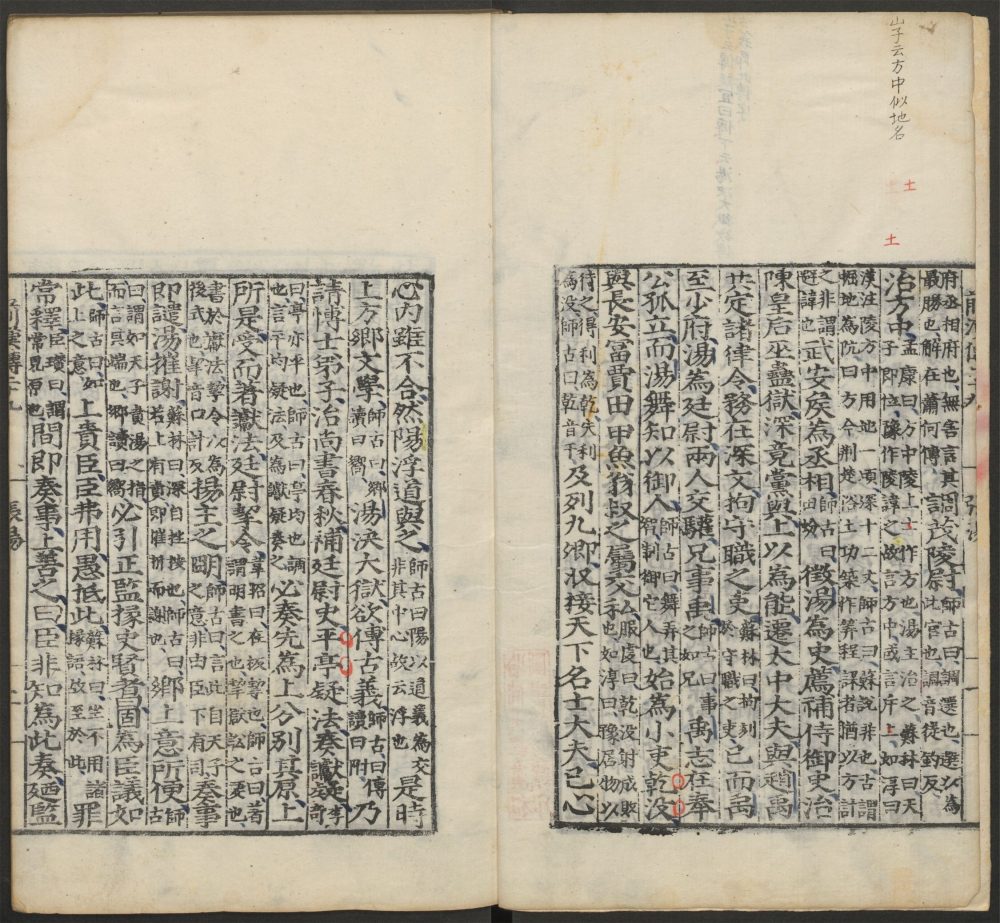 山子云方中似地名
土
土
府丞相府也無害言其
最勝也解在蕭何傳
調茂陵尉
師古曰調選也選以為
此官也調音徒釣反
治方中
孟康曰方中陵上土作方也湯主治之蘇林曰天
子即位豫作陵諱之故言方中或言斥上如淳曰
漢注陵方中用地一頃深十二丈師古曰蘇說非也古謂
掘地為阬曰方今荊楚俗土功築作筭程課者猶以方計
之非謂
避諱也
武安侯為丞相
師古曰
田蚡
徵湯為史薦補侍御史治
陳皇后巫蠱獄深竟黨與上以為能遷太中大夫與趙禹
共定諸律令務在深文拘守職之吏
蘇林曰拘刻
於守職之吏
已而禹
至少府湯為廷尉兩人交驩兄事禹
師古曰事
之如兄
禹志在奉
公孤立而湯舞知以御人
師古曰舞弄其
智制御它人也
始為小吏乾沒
與長安富賈田甲魚翁叔之屬交私
服虔曰乾沒射成敗
也如淳曰豫居物以
待之得利為乾失利
為沒師古曰乾音干
及列九卿收接天下名士大夫已心
心內雖不合然陽浮道與之
師古曰陽以道義為交
非其中心故云浮也
是時
上方鄉文學
師古曰鄉
讀曰嚮
湯決大獄欲傅古義
師古曰傅
讀曰附
乃
請博士弟子治尚書春秋補廷尉史平亭疑法奏讞疑
李奇
曰亭亦平也師古曰亭均也調
也言平均疑法及為讞疑奏之
必奏先為上分別其原上
所是受而著讞法廷尉挈令
韋昭曰在板挈也師古曰著
謂明書之也挈獄訟之要也
書於讞法挈令以為
後式也挈音口計反
揚主之明
師古曰言此自天子
之意非由臣下有司
奏事
即譴湯摧謝
蘇林曰深自挫按也師古曰
若上有責即摧折而謝也
鄉上意所便
師古
曰謂如天子責湯之指
而言其端也鄉讀曰嚮
必引正監掾史賢者曰固為臣議如
此
師古曰如
此上之意
上責臣臣弗用愚抵此
蘇林曰坐不用諸
掾語故至於此
罪
常釋
臣瓚曰謂
常見原也
間即奏事上善之曰臣非知為此奏廼監
前漢傳二十九
張湯